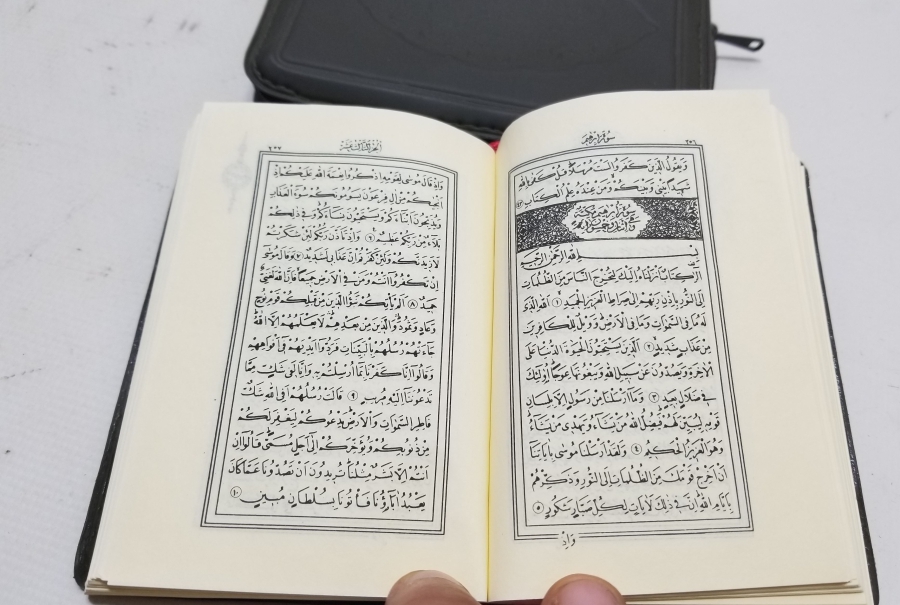 سورة ابرهيم
٢٥٦
وَيَقُولُ الَّذِينَ كَفَرُوا لَسْتَ مُرْسَلًا قُلْ كَفَى بِاللهِ
شَهِيدًا بَيْنِى وَبَيْنَكُمْ وَمَنْ عِنْدَهُ عِلْمُ الْكِتَابِ ٤٣
سورة ابرهيم مكية
بِسْمِ اللهِ الرَّحْمٰنِ الرَّحِيمِ
الٓرٰ كِتَابٌ اَنْزَلْنَاهُ اِلَيْكَ لِتُخْرِجَ النَّاسَ مِنَ الظُّلُمَاتِ
اِلَى النُّورِ بِاِذْنِ رَبِّهِمْ اِلَى صِرَاطِ الْعَزِيزِ الْحَمِيدِ ١ اَللهِ الَّذِى
لَهُ مَا فِى السَّمٰوَاتِ وَمَا فِى الْاَرْضِ وَوَيْلٌ لِلْكَافِرِينَ
مِنْ عَذَابٍ شَدِيدٍ ٢ اَلَّذِينَ يَسْتَحِبُّونَ الْحَيٰوةَ الدُّنْيَا عَلَى
الْاٰخِرَةِ وَيَصُدُّونَ عَنْ سَبِيلِ اللهِ وَيَبْغُونَهَا عِوَجًا اُولٰئِكَ
فِى ضَلَالٍ بَعِيدٍ ٣ وَمَا اَرْسَلْنَا مِنْ رَسُولٍ اِلَّا بِلِسَانِ
قَوْمِهِ لِيُبَيِّنَ لَهُمْ فَيُضِلُّ اللهُ مَنْ يَشَاءُ وَيَهْدِى مَنْ يَشَاءُ
وَهُوَ الْعَزِيزُ الْحَكِيمُ ٤ وَلَقَدْ اَرْسَلْنَا مُوسٰى بِاٰيَاتِنَا
اَنْ اَخْرِجْ قَوْمَكَ مِنَ الظُّلُمَاتِ اِلَى النُّورِ وَذَكِّرْهُمْ
بِاَيَّامِ اللهِ اِنَّ فِى ذٰلِكَ لَاٰيَاتٍ لِكُلِّ صَبَّارٍ شَكُورٍ ٥
وَاِذْ
الجزء الثالث عشر
٢٥٧
وَاِذْ قَالَ مُوسٰى لِقَوْمِهِ اذْكُرُوا نِعْمَةَ اللهِ عَلَيْكُمْ اِذْ
اَنْجٰيكُمْ مِنْ اٰلِ فِرْعَوْنَ يَسُومُونَكُمْ سُوءَ الْعَذَابِ
وَيُذَبِّحُونَ اَبْنَاءَكُمْ وَيَسْتَحْيُونَ نِسَاءَكُمْ وَفِى ذٰلِكُمْ
بَلَاءٌ مِنْ رَبِّكُمْ عَظِيمٌ ٦ وَاِذْ تَاَذَّنَ رَبُّكُمْ لَئِنْ شَكَرْتُمْ
لَاَزِيدَنَّكُمْ وَلَئِنْ كَفَرْتُمْ اِنَّ عَذَابِى لَشَدِيدٌ ٧ وَقَالَ مُوسٰى
اِنْ تَكْفُرُوا اَنْتُمْ وَمَنْ فِى الْاَرْضِ جَمِيعًا فَاِنَّ اللهَ لَغَنِىٌّ
حَمِيدٌ ٨ اَلَمْ يَاْتِكُمْ نَبَؤُا الَّذِينَ مِنْ قَبْلِكُمْ قَوْمِ نُوحٍ
وَعَادٍ وَثَمُودَ وَالَّذِينَ مِنْ بَعْدِهِمْ لَا يَعْلَمُهُمْ اِلَّا اللهُ
جَاءَتْهُمْ رُسُلُهُمْ بِالْبَيِّنَاتِ فَرَدُّوا اَيْدِيَهُمْ فِى اَفْوَاهِهِمْ
وَقَالُوا اِنَّا كَفَرْنَا بِمَا اُرْسِلْتُمْ بِهِ وَاِنَّا لَفِى شَكٍّ مِمَّا
تَدْعُونَنَا اِلَيْهِ مُرِيبٍ ٩ قَالَتْ رُسُلُهُمْ اَفِى اللهِ شَكٌّ
فَاطِرِ السَّمٰوَاتِ وَالْاَرْضِ يَدْعُوكُمْ لِيَغْفِرَ لَكُمْ
مِنْ ذُنُوبِكُمْ وَيُؤَخِّرَكُمْ اِلَى اَجَلٍ مُسَمًّى قَالُوا اِنْ
اَنْتُمْ اِلَّا بَشَرٌ مِثْلُنَا تُرِيدُونَ اَنْ تَصُدُّونَا عَمَّا كَانَ
يَعْبُدُ اٰبَاؤُنَا فَأْتُونَا بِسُلْطَانٍ مُبِينٍ ١٠